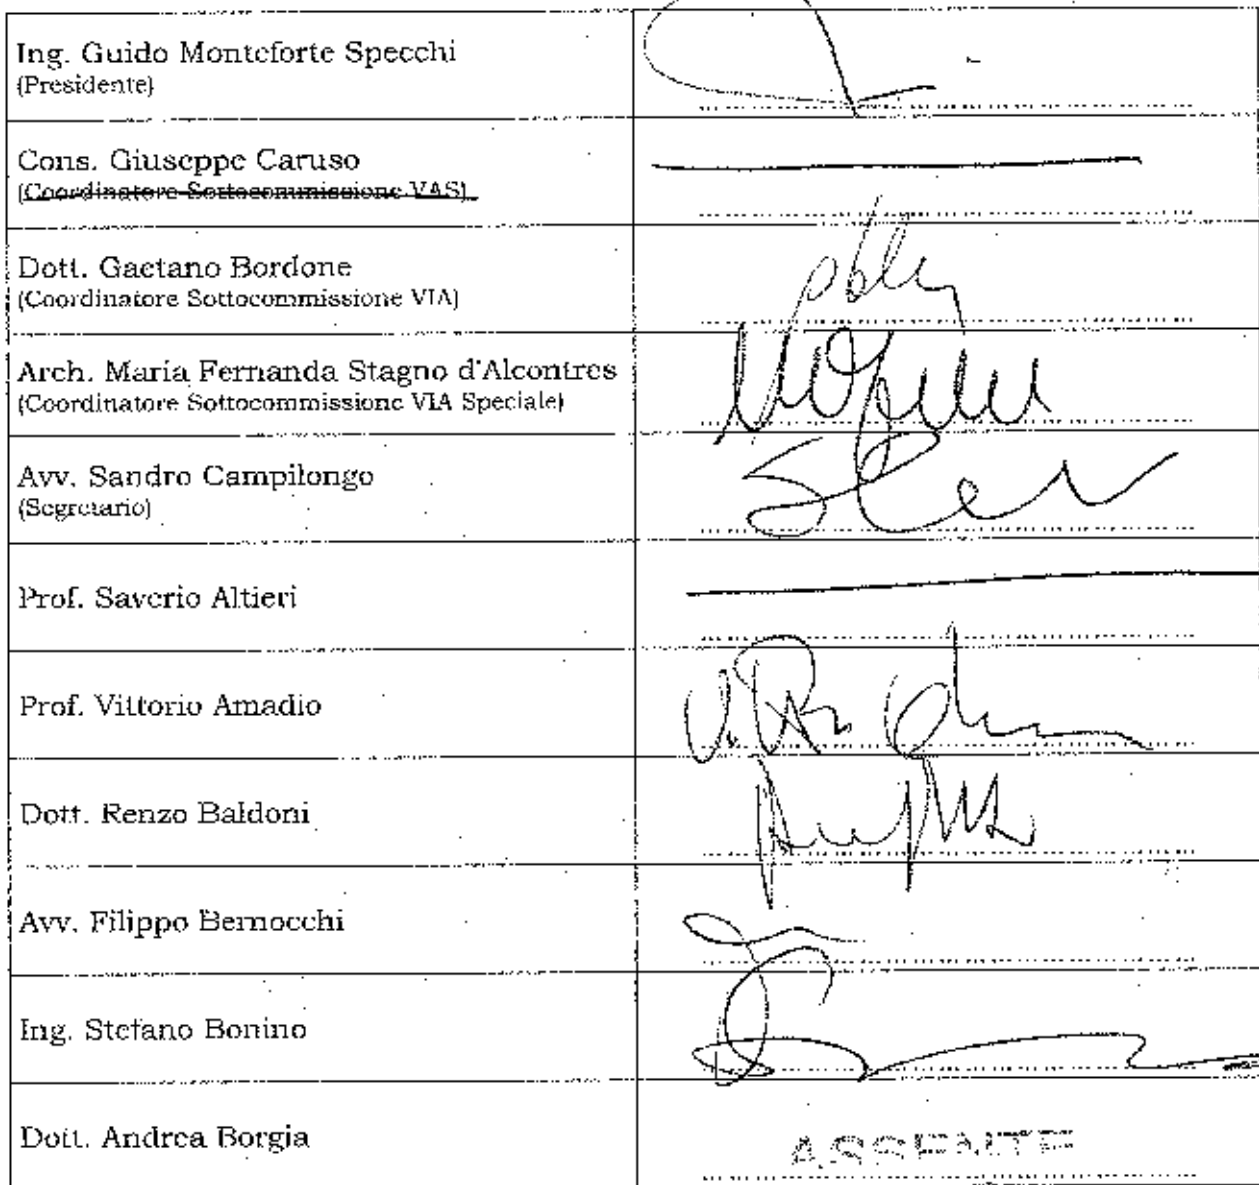 Ing. Guido Monteforte Specchi
(Presidente)
Cons. Giuseppe Caruso
(Coordinatore Sottocommissione VAS)
Dott. Gaetano Bordone
(Coordinatore Sottocommissione VIA)
Arch. Maria Fernanda Stagno d'Alcontres
(Coordinatore Sottocommissione VIA Speciale)
Avv. Sandro Campilongo
(Segretario)
Prof. Saverio Altieri
Prof. Vittorio Amadio
Dott. Renzo Baldoni
Avv. Filippo Bernocchi
Ing. Stefano Bonino
Dott. Andrea Borgia
ASSENTE